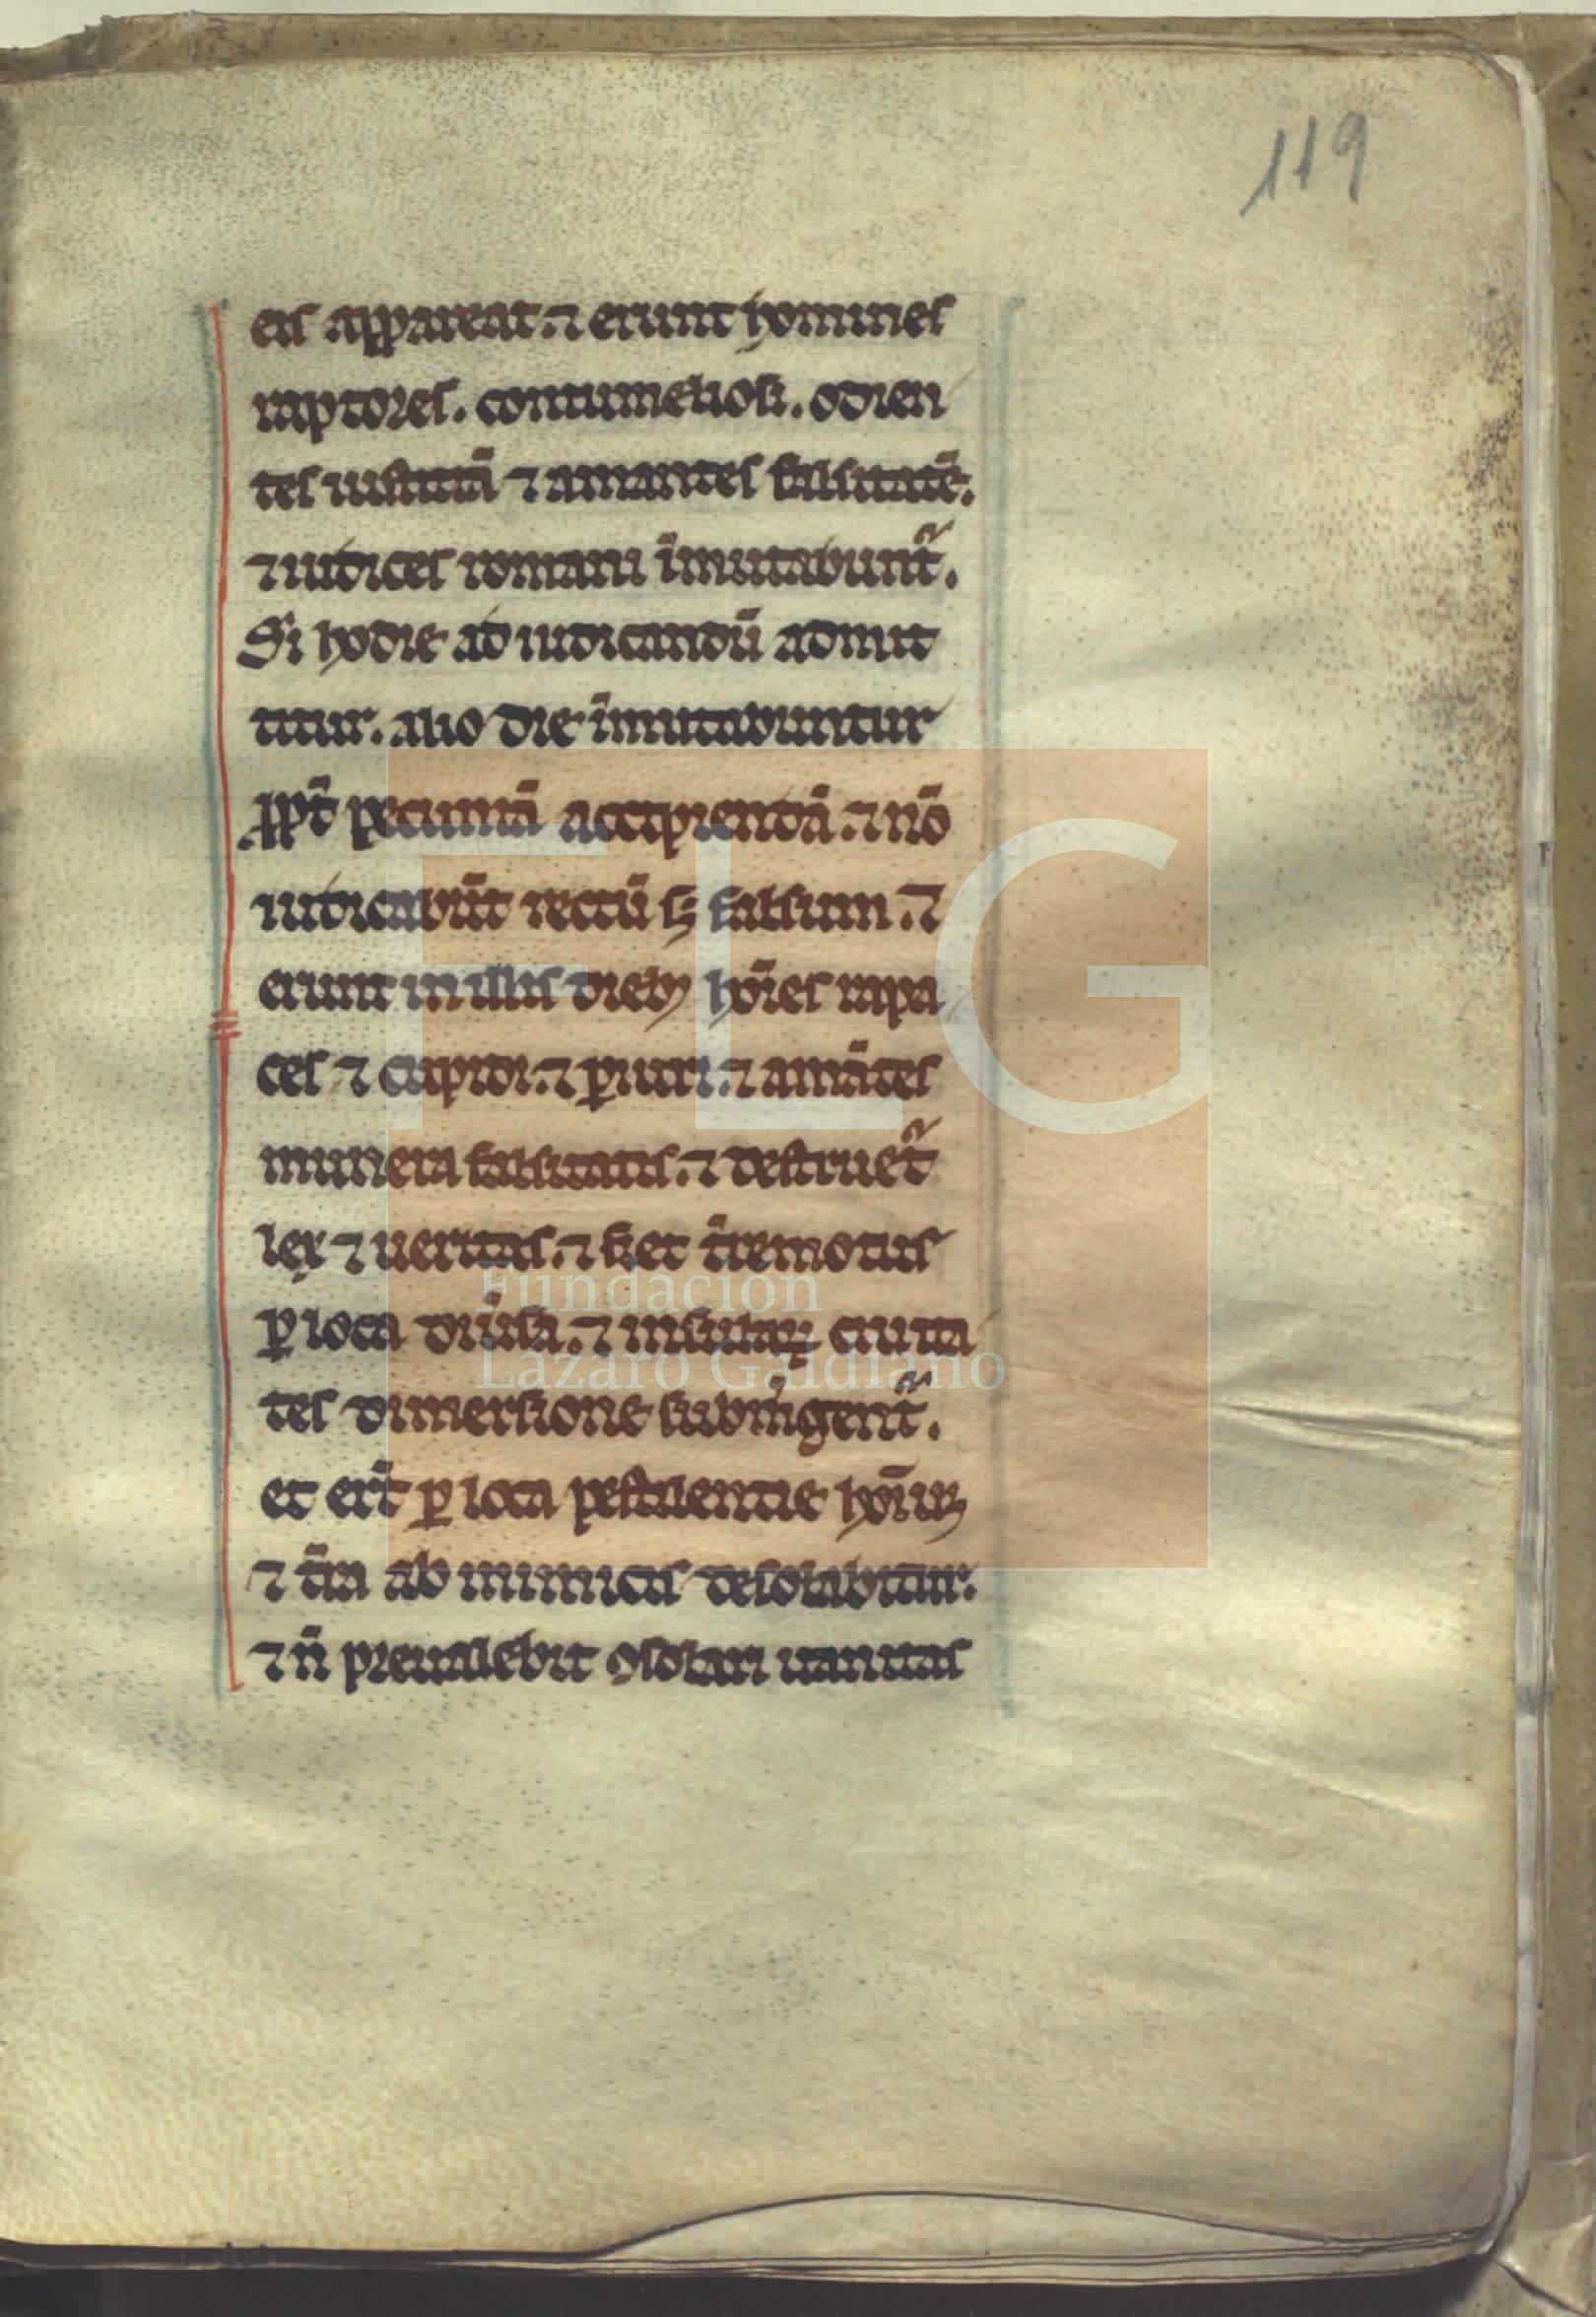 119
eis appareat. ⁊ erunt homines
raptores. contumeliosi. odien
tes iusticiā ⁊ amantes falsitatē.
⁊ iudices romani īmutabunt᷑.
Si hodie ad iudicandū admit
titur. alio die īmutabuntur
ꝓpt̄ pecuniā accipiendā. ⁊ nō
iudicabūt rectū sꝫ falsum. ⁊
erunt in illis diebꝫ hoīes rapa
ces ⁊ cupidi. ⁊ ꝑiuri. ⁊ amātes
munera falsitatis. ⁊ destruet᷑
lex ⁊ ueritas. ⁊ fiet t̄remotus
ꝑ loca diūsa. ⁊ insulaꝝ ciuita
tes dimersione submīgent᷑.
et erūt ꝑ loca pestilentie hoīuꝫ
⁊ t̄ra ab inimicis desolabitur.
⁊ n̄ preualebit ꝯsolari uanitas
FLG
Fundación
Lázaro Galdiano